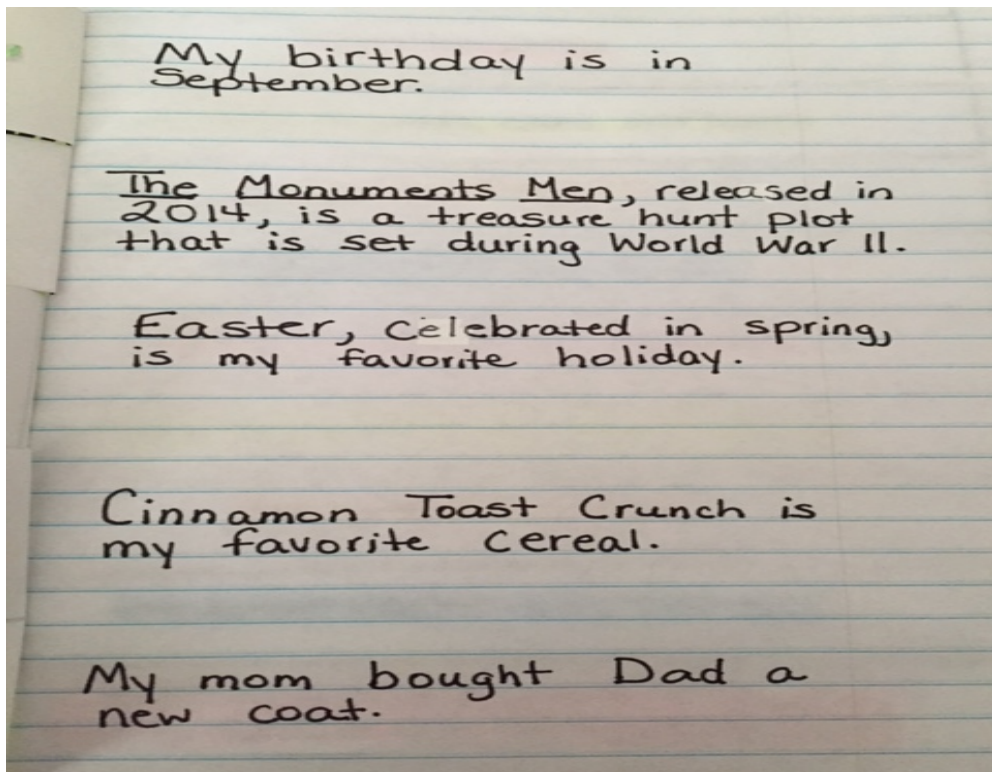 My birthday is in
September.
The Monuments Men, released in
2014, is a treasure hunt plot
that is set during World War II.
Easter, celebrated in spring,
is my favorite holiday.
Cinnamon Toast Crunch is
my favorite cereal.
My mom bought Dad a
new coat.